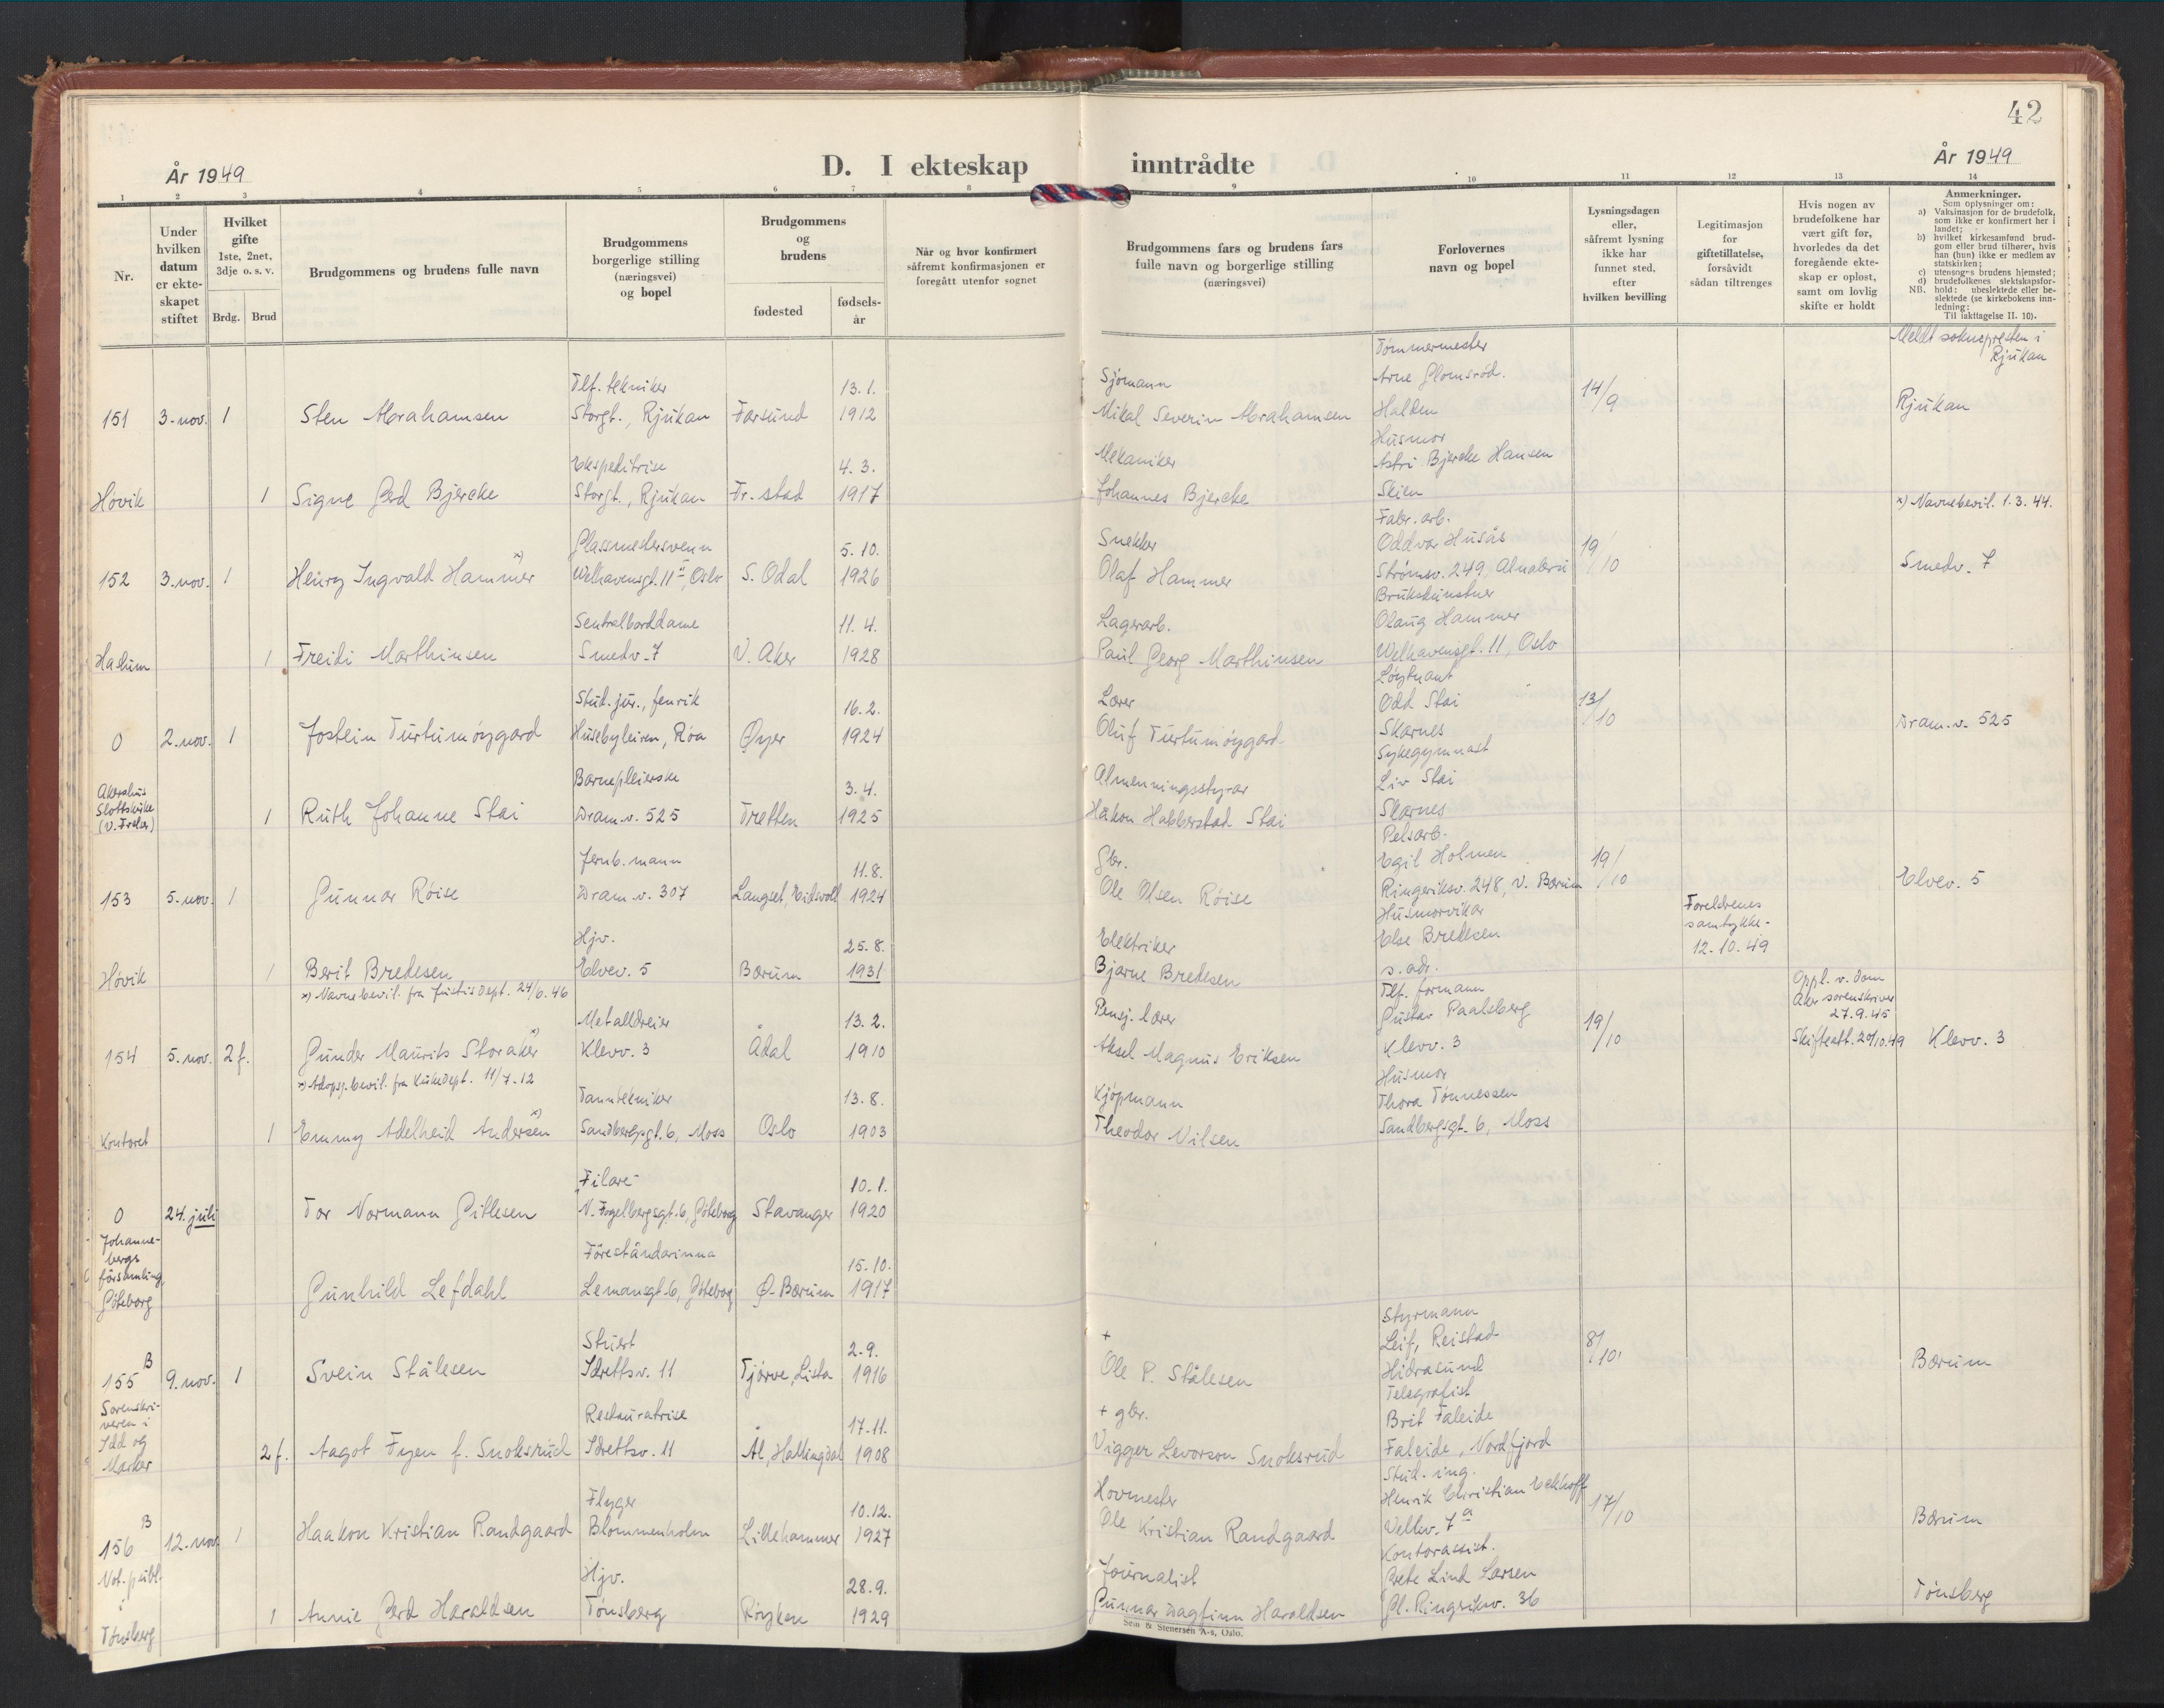 42
År 1949
D. I ekteskap inntrådte
År 1949
1 2 3 4 5 6 7 8 9 10 11 12 13 14
Nr.
Under hvilken datum er ekteskapet stiftet
Hvilket gifte 1ste, 2net, 3dje o. s. v.
Brdg. Brud
Brudgommens og brudens fulle navn
Brudgommens borgerlige stilling (næringsvei) og bopel
Brudgommens og brudens
fødested
fødselsår
Når og hvor konfirmert såfremt konfirmasjonen er foregått utenfor sognet
Brudgommens fars og brudens fars fulle navn og borgerlige stilling (næringsvei)
Forlovernes navn og bopel
Lysningsdagen eller, såfremt lysning ikke har funnet sted, efter hvilken bevilling
Legitimasjon for giftetillatelse, forsåvidt sådan tiltrenges
Hvis nogen av brudefolkene har vært gift før, hvorledes da det foregående ekteskap er opløst, samt om lovlig skifte er holdt
Anmerkninger.
Som oplysninger om:
a) Vaksinasjon for de brudefolk, som ikke er konfirmert her i landet;
b) hvilket kirkesamfund brudgom eller brud tilhører, hvis han (hun) ikke er medlem av statskirken;
c) utensogns brudens hjemsted;
d) brudefolkenes slektskapsforhold: ubeslektede eller beslektede (se kirkebokens innledning:
NB. Til iakttagelse II. 10).
Tømmermester Meldt soknepresten i Rjukan
Tlf. tekniker 13.1. Sjømann Arne Glomsrød. 14/9
151 3. nov. 1 Sten Abrahamsen Storgt., Rjukan Farsund 1912 Mikal Severin Abrahamsen Halden Rjukan
Husmor
Ekspeditrise 4.3. Mekaniker Astri Bjercke Hansen
Høvik 1 Signe Gerd Bjercke Storgt., Rjukan Fr. stad 1917 Johannes Bjercke Skien
x) Navnebevil. 1.3.44.
Fabr. arb.
Glassmestersvenn 5.10. Snekker Oddvar Husås 19/10
152 3. nov. 1 Henry Ingvald Hammer x) Welhavensgt. 11 II, Oslo S. Odal 1926 Olaf Hammer Strømsv. 249, Alnabru Smedv. 7
Brukskunstner
Sentralborddame 11.4. Lagerarb. Olaug Hammer
Haslum 1 Freidi Marthinsen Smedv. 7 V. Aker 1928 Paul Georg Marthinsen Welhavensgt. 11, Oslo
Løytnant
Stud. jur., fenrik 16.2. Lærer Odd Stai 13/10
0 2. nov. 1 Jostein Turtumøygard Husebyleiren, Røa Øyer 1924 Oluf Turtumøygard Skarnes Dram.v. 525
Sykegymnast
Barnepleierske 3.4. Almenningsstyrar Liv Stai
Akershus Slottskirke (v. Freler) 1 Ruth Johanne Stai Dram.v. 525 Tretten 1925 Håkon Habberstad Stai Skarnes
Pelsarb.
Jernb. mann 11.8. Gbr. Egil Holmen 19/10
153 5. nov. 1 Gunnar Røise Dram.v. 307 Langset, Eidsvoll 1924 Ole Olsen Røise Ringeriksv. 248, V. Bærum Elvev. 5
Husmorvikar Foreldrenes samtykke - 12.10.49
Hjv. 25.8. Elektriker Else Bredesen
Høvik 1 Berit Bredesen Elvev. 5 Bærum 1931 Bjarne Bredesen s. adr.
x) Navnebevil. fra Justisdept. 24/6.46
Tlf. formann Oppl. v. dom Aker sorenskriver 27.9.45
Metalldreier 13.2. Pensj. lærer Gustav Paalsberg 19/10
154 5. nov. 2 f. Gunder Maurits Storaker x) Klevv. 3 Ådal 1910 Aksel Magnus Eriksen Klevv. 3 Skifteatt. 20/10.49 Klevv. 3
x) Adopsj. bevil. fra Kirkedept. 11/7.12
Husmor
Tanntekniker 13.8. Kjøpmann Thora Tønnessen
Kontoret 1 Emmy Adelheid Andersen x) Sandbergsgt. 6, Moss Oslo 1903 Theodor Nilsen Sandbergsgt. 6, Moss
Filare 10.1.
0 24. juli Tor Normann Gitlesen N. Fogelbergsgt. 6, Göteborg Stavanger 1920
Föreståndarinna 15.10.
Johannebergs församling Göteborg Gunhild Lefdahl Lemansgt. 6, Göteborg Ø. Bærum 1917
Styrmann
Stuert 2.9. + Leif Reistad 8/10
155 B 9. nov. 1 Svein Stålesen Idrettsv. 11 Tjørve, Lista 1916 Ole P. Stålesen Hidrasund Bærum
Telegrafist
Restauratrise 17.11. + gbr. Brit Faleide
Sorenskriveren i Idd og Marker 2 f. Aagot Fyen f. Snoksrud Idrettsv. 11 Ål, Hallingdal 1908 Vigger Levorson Snoksrud Faleide, Nordfjord
Stud. ing.
Flyger 10.12. Hovmester Henrik Christian Eckhoff 17/10
156 B 12. nov. 1 Haakon Kristian Randgaard Blommenholm Lillehammer 1927 Ole Kristian Randgaard Vellv. 7 a Bærum
Kontorassist.
Hjv. 28.9. Journalist Grete Lind Larsen
Not. publ. i Tønsberg 1 Annie Gerd Haraldsen Tønsberg Røyken 1929 Gunnar Dagfinn Haraldsen Gl. Ringeriksv. 36 Tønsberg
Sem & Stenersen A-s, Oslo.